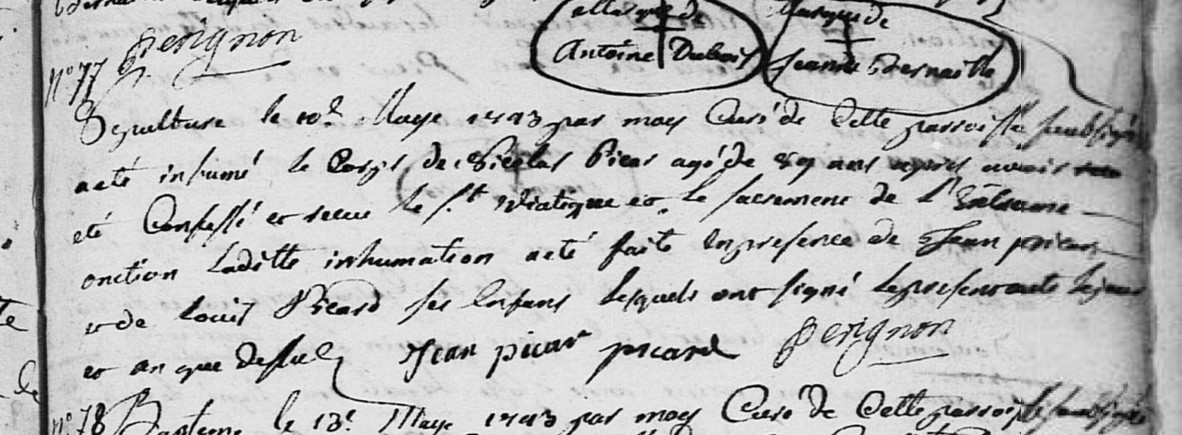 marque de marque de
Antoine Dubois Jeanne
perignon
N° 77
Sepulture le 10e. Maye 1793 par moy Curé de Cette parroisse soubsigné
a eté inhumé le Corps de Nicolas Picar agé de 89 ans apres avoir
eté Confessé et receu le St. Viatique et le sacrement de l'Extreme
onction Laditte inhumation a eté faite En presence de Jean picar
et de Louis Picard ses Enfans lesquels ont signé le present acte le jour
et an que dessus Jean picar picard perignon
N° 78 Bapteme le 13e. Maye 1793 par moy Curé de Cette parroisse soubsigné